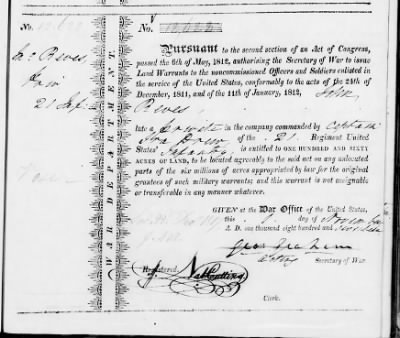 No.
No.
Jno Reves
Priv
21 Inf
WAR DEPARTMENT.
Pursuant to the second section of an Act of Congress,
passed the 6th of May, 1812, authorising the Secretary of War to issue
Land Warrants to the noncommissioned Officers and Soldiers enlisted in
the service of the United States, conformably to the acts of the 24th of
December, 1811, and of the 11th of January, 1812, John
Reves
late a Private in the company commanded by Captain
Ira Drew of the 21 Regiment United
States' Infantry is entitled to ONE HUNDRED AND SIXTY
ACRES OF LAND, to be located agreeably to the said act on any unlocated
parts of the six millions of acres appropriated by law for the original
grantees of such military warrants; and this warrant is not assignable
or transferable in any manner whatever.
GIVEN at the War Office of the United States,
this day of November
A. D. one thousand eight hundred and seventeen
Geo: Graham
acting Secretary of War
Registered, Nat Cutting
Clerk.